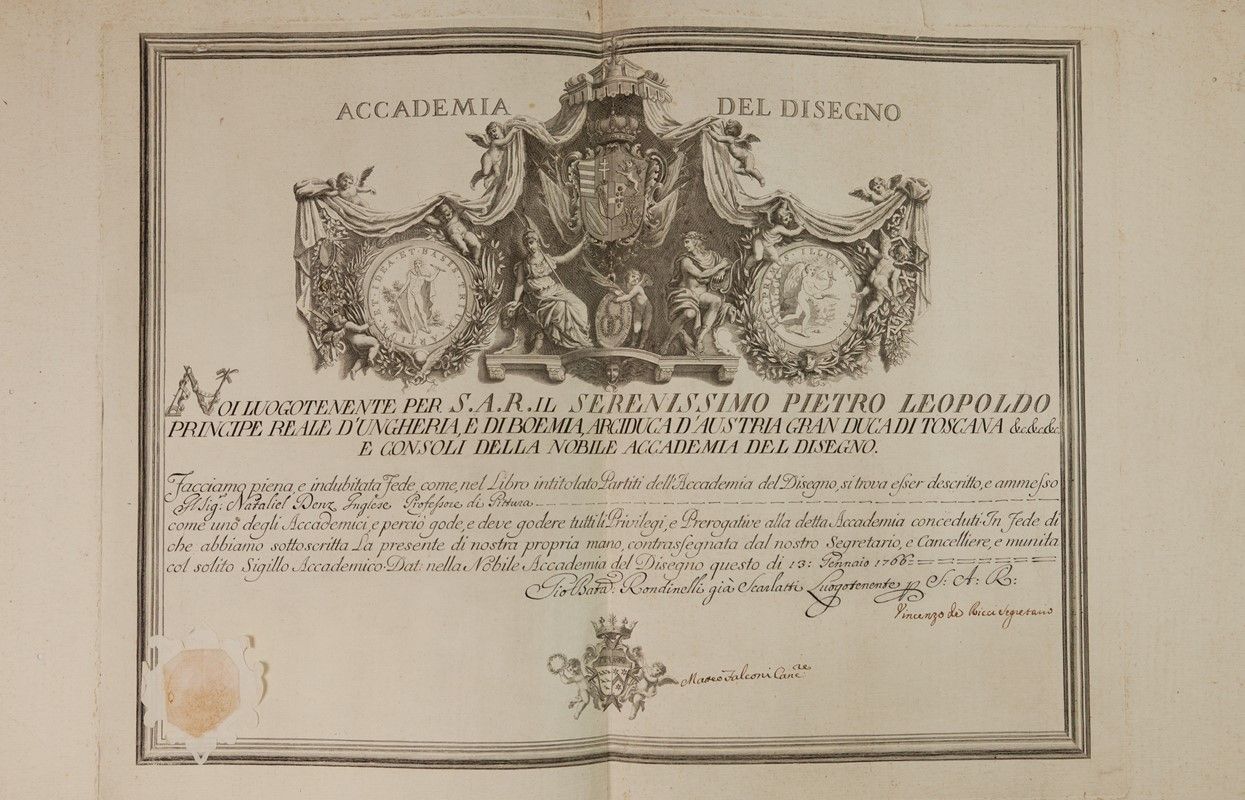 ACCADEMIA DEL DISEGNO
NOI LUOGOTENENTE PER S.A.R. IL SERENISSIMO PIETRO LEOPOLDO
PRINCIPE REALE D'UNGHERIA, E DI BOEMIA, ARCIDUCA D'AUSTRIA GRAN DUCA DI TOSCANA &c.&c.&c.
E CONSOLI DELLA NOBILE ACCADEMIA DEL DISEGNO.
Facciamo piena, e indubitata Fede, come, nel Libro intitolato Partiti dell'Accademia del Disegno, si trova esser descritto, e ammesso
Il Sig.r Nataliel Denz Inglese Professore di Pittura
come uno degli Accademici, e perciò gode, e deve godere tutti li Privilegi, e Prerogative alla detta Accademia conceduti. In Fede di
che abbiamo sottoscritta La presente di nostra propria mano, contrassegnata dal nostro Segretario, e Cancelliere, e munita
col solito Sigillo Accademico. Dat: nella Nobile Accademia del Disegno questo dì 13: Gennaio 1766:
Gio Batta. Rondinelli già Scarlatti Luogotenente p S: A: R:
Vincenzo de Ricci Segretario
Matteo Falconi Can.re